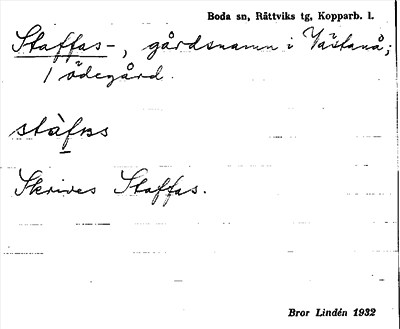 Boda sn, Rättviks tg, Kopparb. l.
Staffas-, gårdsnamn i Västanå;
1 ödegård.
stàfas
Skrives Staffas.
Bror Lindén 1932